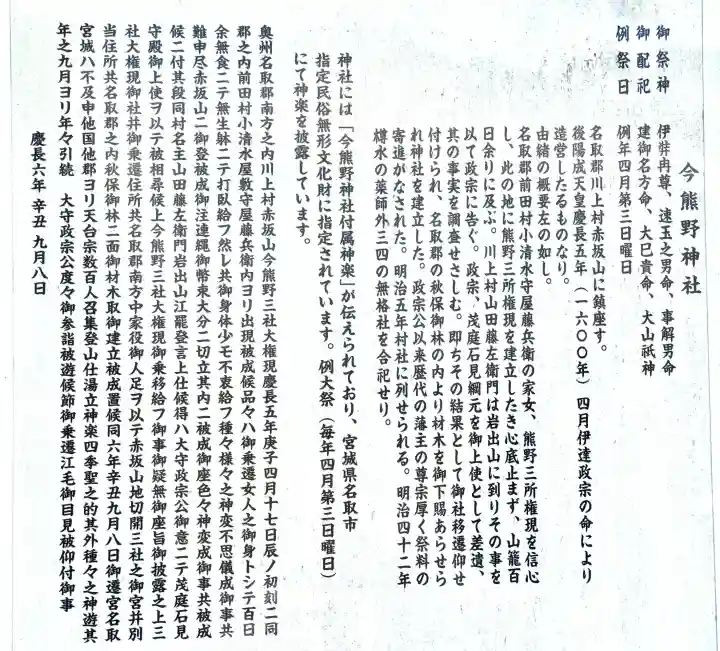 今熊野神社
御祭神　伊弉冉尊、速玉之男命、事解男命
御配祀　建御名方命、大巳貴命、大山祇神
例祭日　例年四月第三日曜日
名取郡川上村赤坂山に鎮座す。
後陽成天皇慶長五年（一六〇〇年）四月伊達政宗の命により
造営したるものなり。
由緒の概要左の如し。
名取郡前田村小清水守屋藤兵衛の家女、熊野三所権現を信心
し、此の地に熊野三所権現を建立したき心底止まず、山籠百
日余りに及ぶ。川上村山田藤左衛門は岩出山に到りその事を
以て政宗に告ぐ。政宗、茂庭石見綱元を御上使として差遣、
其の事実を調査せさしむ。即ちその結果として御社移遷仰せ
付けられ、名取郡の秋保御林の内より材木を御下賜あらせら
れ神社を建立した。政宗公以来歴代の藩主の尊宗厚く祭料の
寄進がなされた。明治五年村社に列せられる。明治四十二年
樽水の薬師外三四の無格社を合祀せり。
神社には「今熊野神社付属神楽」が伝えられており、宮城県名取市
指定民俗無形文化財に指定されています。例大祭（毎年四月第三日曜日）
にて神楽を披露しています。
奥州名取郡南方之内川上村赤坂山今熊野三社大権現慶長五年庚子四月十七日辰ノ初刻二同
郡之内前田村小清水屋敷守屋藤兵衛内ヨリ出現被成候品々ハ御乗遷女人之御身トシテ百日
余無食二テ無生躰二テ打臥給フ然レ共御身体少モ不衷給フ種々様々之神変不思儀成御事共
難申尽赤坂山二御登被成御注連縄御幣束大分二切立其内二被成御座色々神変成御事共被成
候二付其段同村名主山田藤左衛門岩出山江罷登言上仕候得ハ大守政宗公御意二テ茂庭石見
守殿御上使ヲ以テ被相尋候上今熊野三社大権現御乗移給フ御事御疑無御座旨御披露之上三
社大権現御社并御乗遷住所共名取郡南方中家役御人足ヲ以テ赤坂山地切開三社之御宮并別
当住所共名取郡之内秋保御林二面御材木取御建立被成置候同六年辛丑九月八日御遷宮名取
宮城ハ不及申他国他郡ヨリ天台宗数百人召集登山仕湯立神楽四季聖之的其外種々之神遊其
年之九月ヨリ年々引続　大守政宗公度々御参詣被遊候節御乗遷江毛御目見被仰付御事
慶長六年 辛丑 九月八日